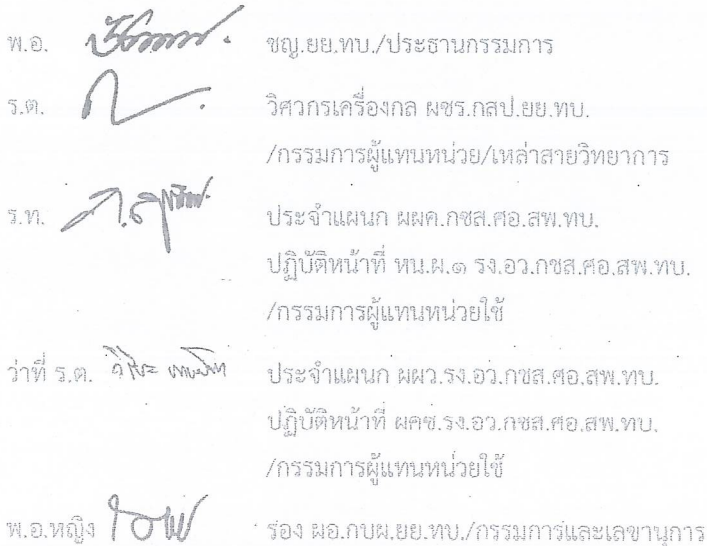 พ.อ. ชญ.ยย.ทบ./ประธานกรรมการ
ร.ต. วิศวกรเครื่องกล ผชร.กสป.ยย.ทบ.
/กรรมการผู้แทนหน่วย/เหล่าสายวิทยาการ
ร.ท. ประจำแผนก ผผค.กซส.ศอ.สพ.ทบ.
ปฏิบัติหน้าที่ หน.ผ.๑ รง.อว.กซส.ศอ.สพ.ทบ.
/กรรมการผู้แทนหน่วยใช้
ว่าที่ ร.ต. ประจำแผนก ผผว.รง.อว.กซส.ศอ.สพ.ทบ.
ปฏิบัติหน้าที่ ผคช.รง.อว.กซส.ศอ.สพ.ทบ.
/กรรมการผู้แทนหน่วยใช้
พ.อ.หญิง รอง ผอ.กบผ.ยย.ทบ./กรรมการและเลขานุการ